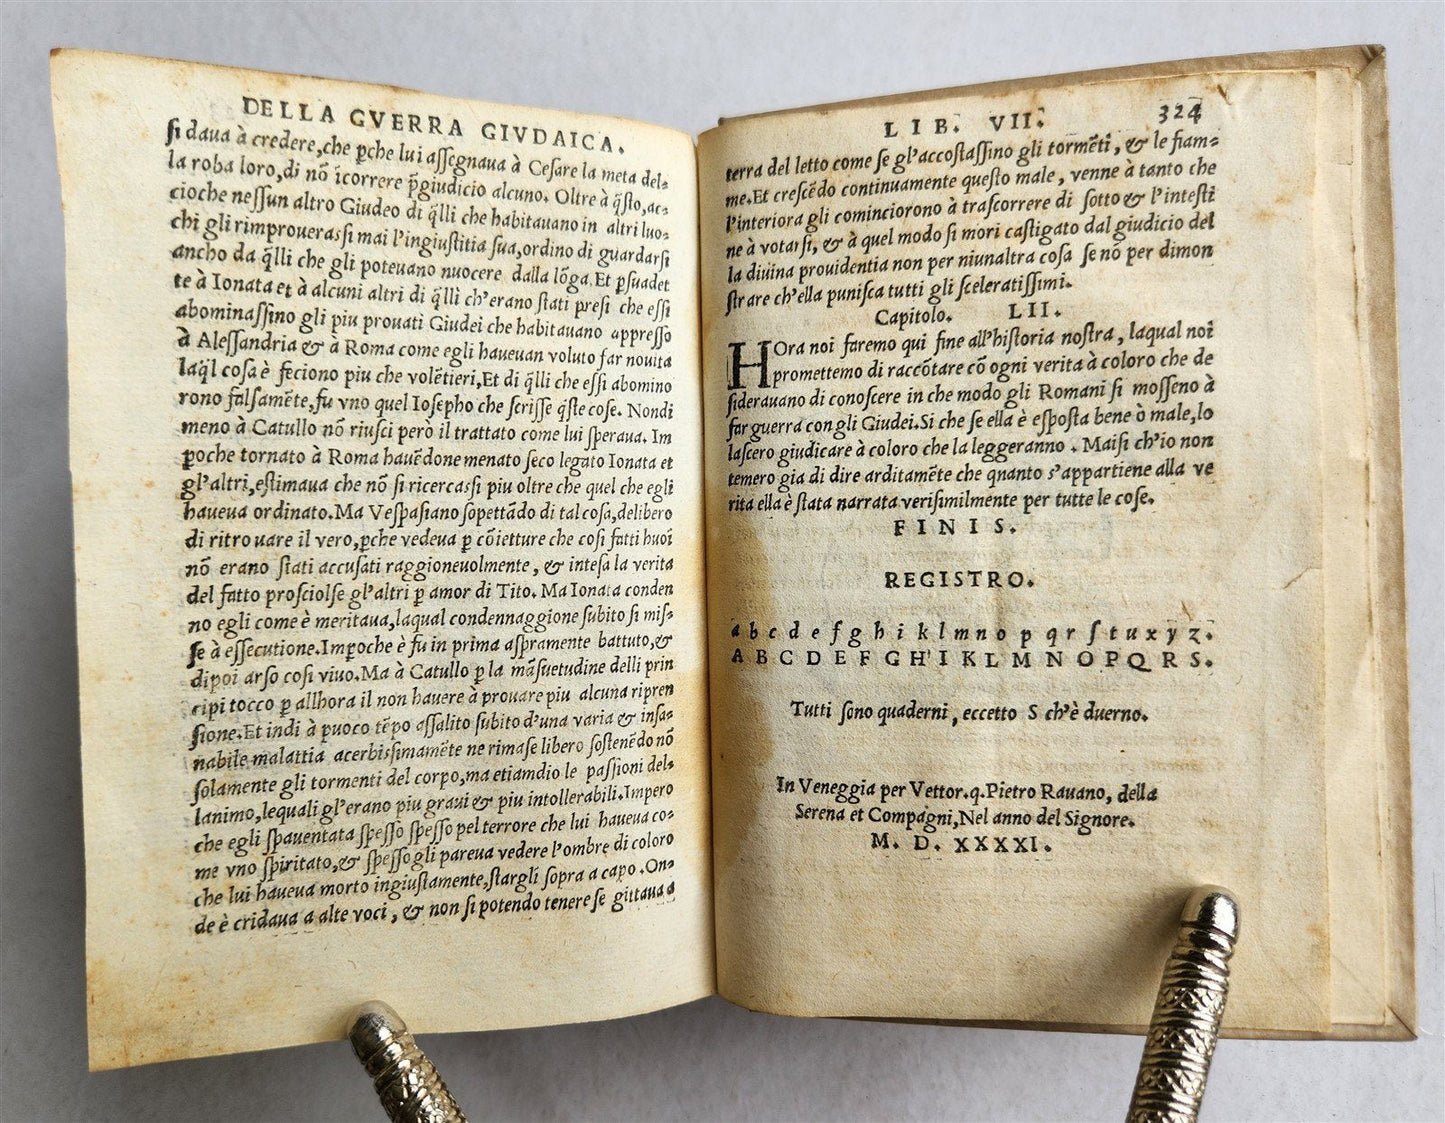 DELLA GVERRA GIVDAICA.
ſi daua à credere,che ꝑche lui aſſegnaua à Ceſare la meta del⸗
la roba loro,di nõ ĩcorrere p̃giudicio alcuno. Oltre à q̃ſto,ac⸗
cioche neſſun altro Giudeo di q̃lli che habitauano in altri luo⸗
chi gli rimproueraſſi mai l'ingiuſtitia ſua,ordino di guardarſi
ancho da q̃lli che gli poteuano nuocere dalla lõga. Et ꝑſuadet
te à Ionata et à alcuni altri di q̃lli ch'erano ſtati preſi che eſſi
abominaſſino gli piu prouati Giudei che habitauano appreſſo
à Aleſſandria & à Roma come egli haueuan voluto far nouita
laq̃l coſa è feciono piu che volẽtieri,Et di q̃lli che eſſi abomino
rono falſamẽte,fu vno quel Ioſepho che ſcriſſe q̃ſte coſe. Nondi
meno à Catullo nõ riuſci però il trattato come lui ſperaua. Im
ꝑoche tornato à Roma hauẽdone menato ſeco legato Ionata et
gl'altri,eſtimaua che nõ ſi ricercaſſi piu oltre che quel che egli
haueua ordinato. Ma Veſpaſiano ſopettãdo di tal coſa,delibero
di ritrouare il vero,ꝑche vedeua ꝑ cõietture che coſi fatti huoĩ
nõ erano ſtati accuſati raggioneuolmente, & inteſa la verita
del fatto proſciolſe gl'altri ꝑ amor di Tito. Ma Ionata conden
no egli come è meritaua,laqual condennaggione ſubito ſi miſ⸗
ſe à eſſecutione.Imꝑoche è fu in prima aſpramente battuto,&
dipoi arſo coſi viuo.Ma à Catullo ꝑ la mãſuetudine delli prin
cipi tocco ꝑ allhora il non hauere à prouare piu alcuna ripren
ſione.Et indi à puoco tẽpo aſſalito ſubito d'una varia & inſa⸗
nabile malattia acerbiſſimamẽte ne rimaſe libero ſoſtenẽdo nõ
ſolamente gli tormenti del corpo,ma etiamdio le paſſioni del⸗
lanimo,lequali gl'erano piu graui & piu intollerabili.Impero
che egli ſpauentata ſpeſſo ſpeſſo pel terrore che lui haueua co⸗
me vno ſpiritato,& ſpeſſo gli pareua vedere l'ombre di coloro
che lui haueua morto ingiuſtamente,ſtargli ſopra a capo.On⸗
de è cridaua a alte voci, & non ſi potendo tenere ſe gittaua a
LIB. VII. 324
terra del letto come ſe gl'accoſtaſſino gli tormẽti, & le fiam⸗
me.Et creſcẽdo continuamente queſto male, venne à tanto che
l'interiora gli cominciorono à traſcorrere di ſotto & l'inteſti
ne à votarſi, & à quel modo ſi mori caſtigato dal giudicio del
la diuina prouidentia non per niunaltra coſa ſe nõ per dimon
ſtrare ch'ella puniſca tutti gli ſceleratiſſimi.
Capitolo. LII.
HOra noi faremo qui fine all'hiſtoria noſtra, laqual noi
promettemo di raccõtare cõ ogni verita à coloro che de
ſiderauano di conoſcere in che modo gli Romani ſi moſſeno à
far guerra con gli Giudei.Si che ſe ella è eſpoſta bene ò male,lo
laſcero giudicare à coloro che la leggeranno . Maiſi ch'io non
temero gia di dire arditamẽte che quanto s'appartiene alla ve
rita ella è ſtata narrata veriſimilmente per tutte le coſe.
FINIS.
REGISTRO.
a b c d e f g h i k l m n o p q r ſ t u x y z.
A B C D E F G H I K L M N O P Q R S.
Tutti ſono quaderni, eccetto S ch'è duerno.
In Veneggia per Vettor.q.Pietro Rauano, della
Serena et Compagni,Nel anno del Signore.
M. D. XXXXI.